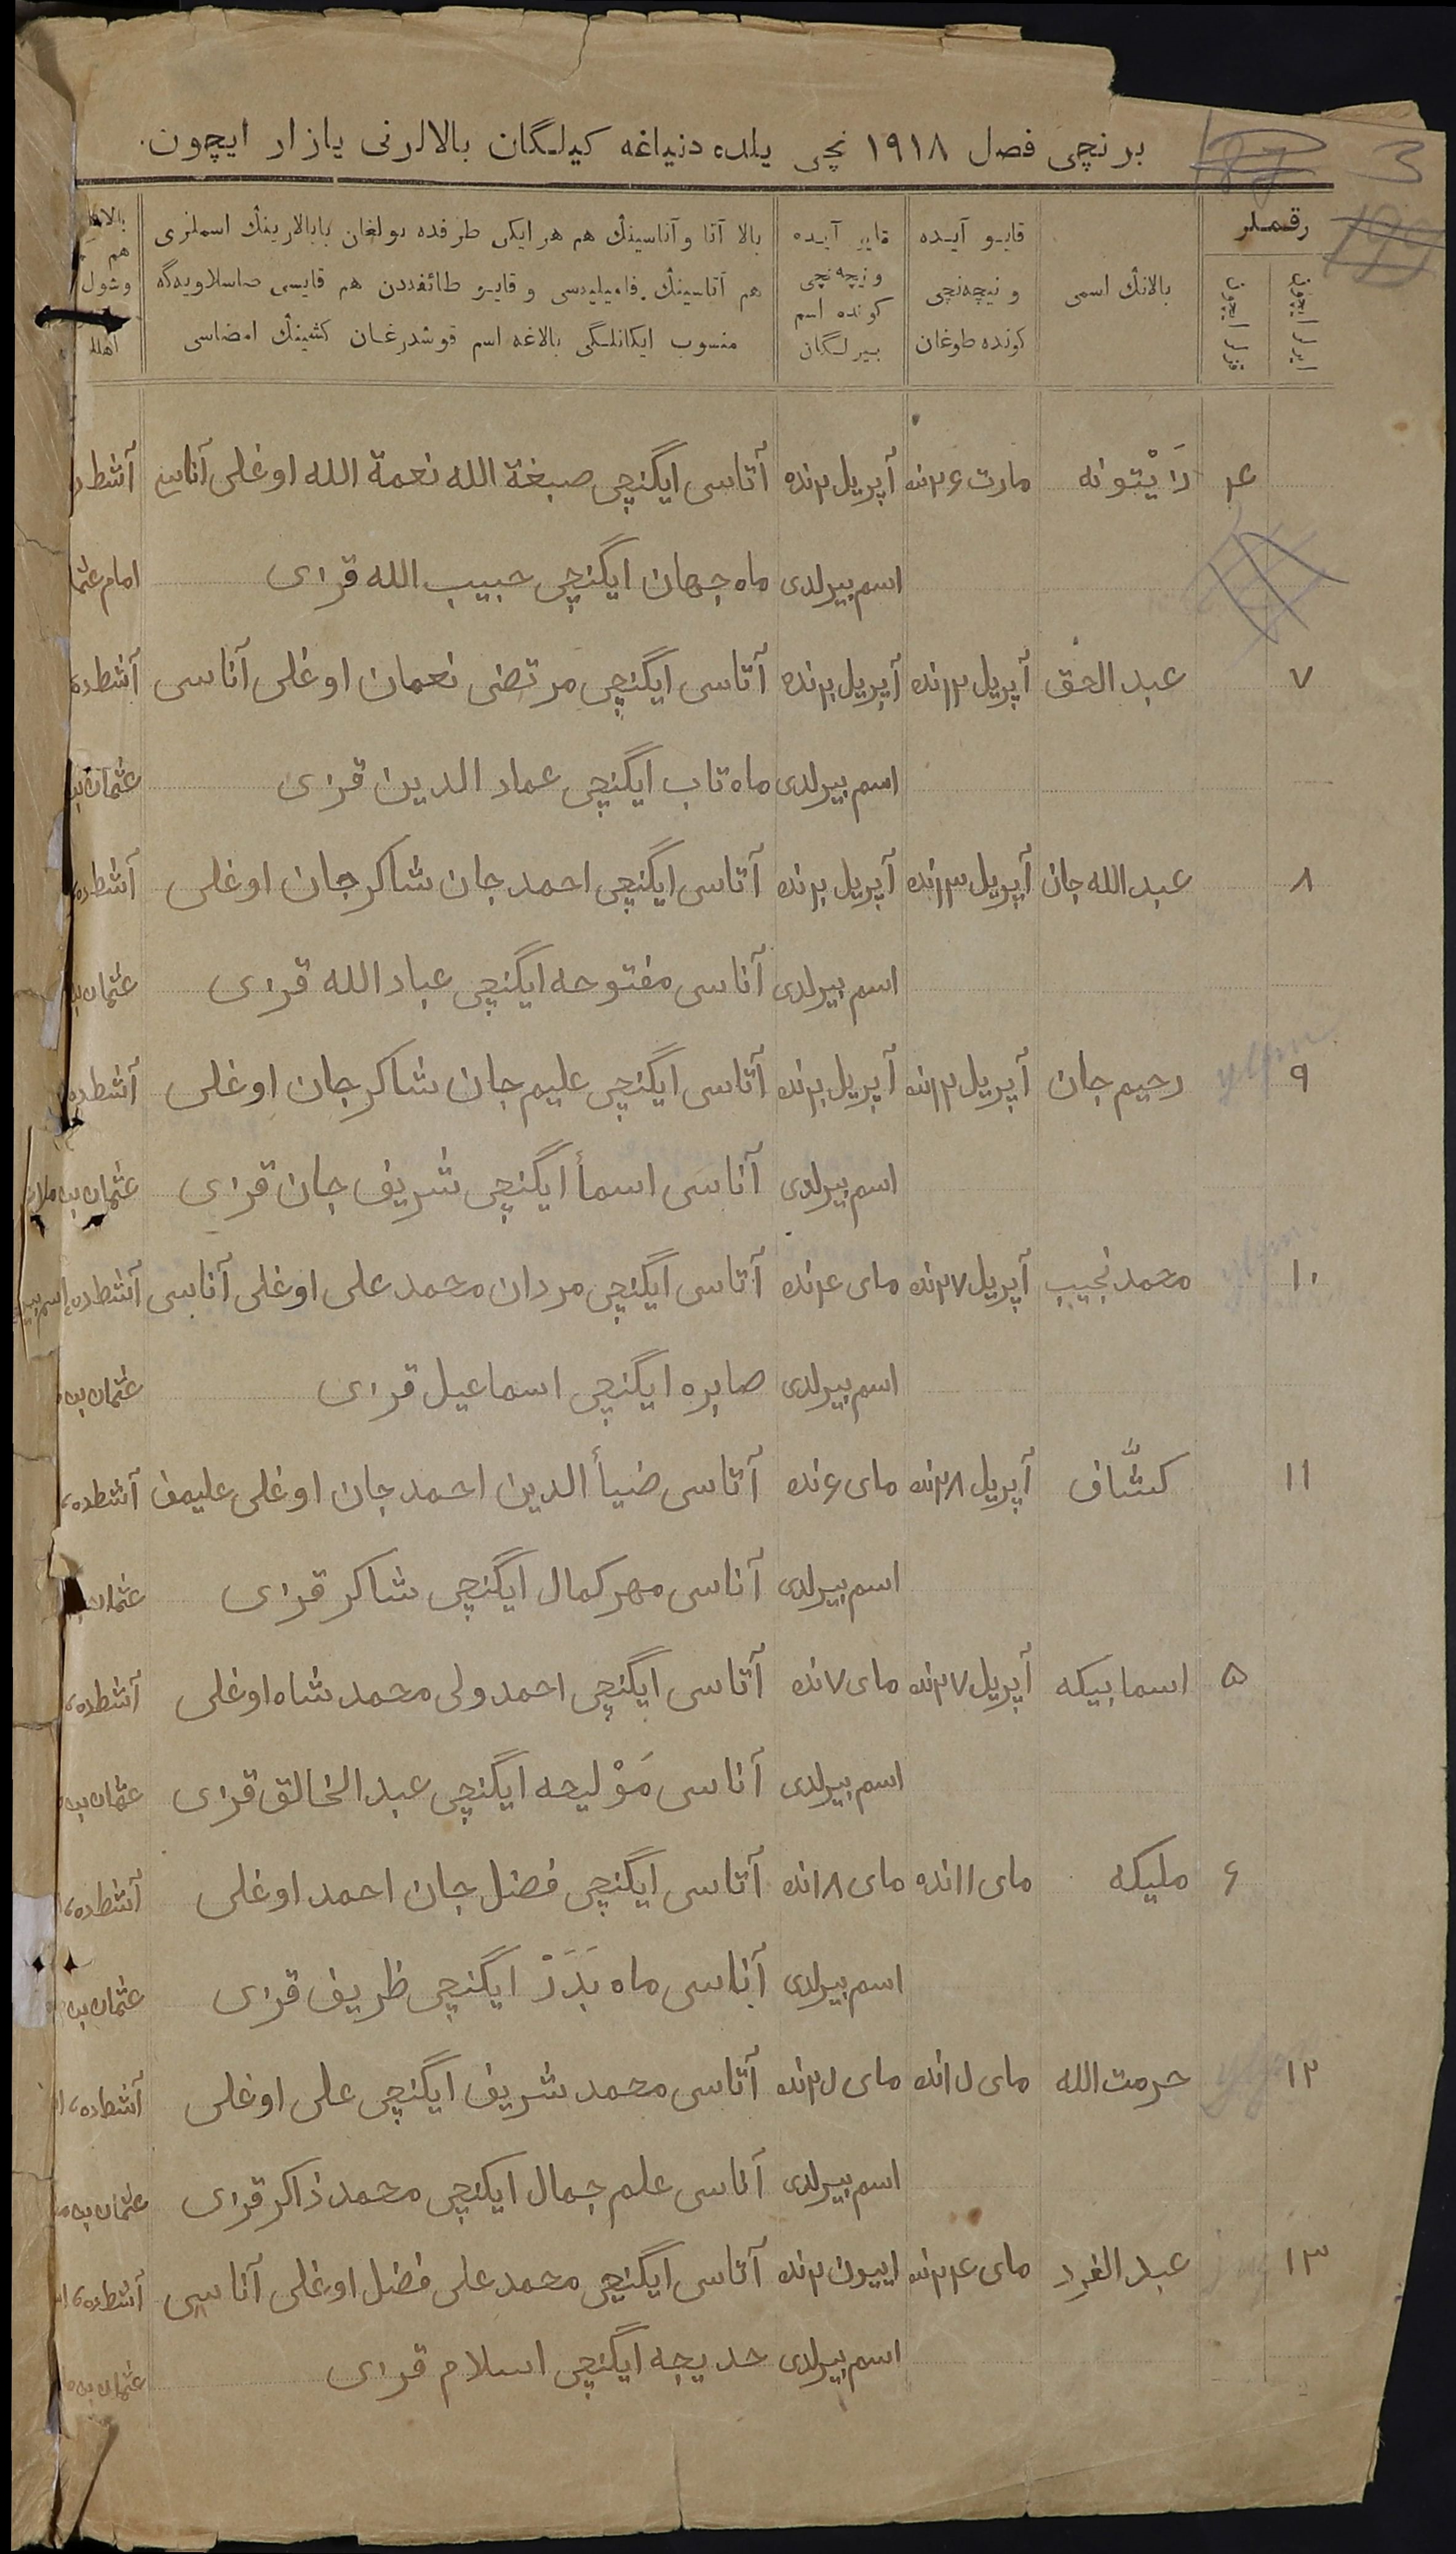 برنچی فصل ۱۹۱۸ نچی یلده دنیاغه کیلگان بالالرنی یازار ایچون.
3
رقملر
ایرلر ایچون
قزلر ایچون
بالانڭ اسمی
قایو آیده
و نیچه‌نچی
کونده طوغان
قایو آیده
و نیچه‌نچی
کونده اسم
بیرلگان
بالا آتا و آناسینڭ هم هر ایکی طرفده بولغان بابالارینڭ اسملری
هم آتاسینڭ فامیلیه‌سی و قایو طائفه‌دن هم قایسی صاسلاویه‌گه
منسوب ایکانلگی بالاغه اسم قوشدرغان کشینڭ امضاسی
هم
وشول
۴ رَایْتونه مارت ۲۶نده آپریل ۲نده آتاسی ایگنچی صبغة الله نعمة الله اوغلی آناسی آشطده
اسم بیرلدی ماه جهان ایگنچی حبیب الله قزی امام عثما
۷ عبد الحق آپریل ۱۲نده آپریل ۲۰نده آتاسی ایگنچی مرتضی نعمان اوغلی آناسی آشطده
اسم بیرلدی ماه تاب ایگنچی عماد الدین قزی عثمان بن
۸ عبد الله جان آپریل ۱۳نده آپریل ۲۰نده آتاسی ایگنچی احمد جان شاکر جان اوغلی آشطده
اسم بیرلدی آناسی مفتوحه ایگنچی عباد الله قزی عثمان بن
۹ رحیم جان آپریل ۱۲نده آپریل ۲۰نده آتاسی ایگنچی علیم جان شاکر جان اوغلی آشطده
اسم بیرلدی آناسی اسمأ ایگنچی شریف جان قزی عثمان بن ملا
۱۰ محمد نجیب آپریل ۲۷نده مای ۴نده آتاسی ایگنچی مردان محمد علی اوغلی آناسی آشطده اسم
اسم بیرلدی صابره ایگنچی اسماعیل قزی عثمان بن
۱۱ کشّاف آپریل ۲۸نده مای ۶نده آتاسی ضیأ الدین احمد جان اوغلی علیمف آشطده
اسم بیرلدی آناسی مهر کمال ایگنچی شاکر قزی عثمان
۵ اسما بیکه آپریل ۲۷نده مای ۷نده آتاسی ایگنچی احمد ولی محمد شاه اوغلی آشطده
اسم بیرلدی آناسی مَوْلیحه ایگنچی عبد الخالق قزی عثمان بن
۶ ملیکه مای ۱۱نده مای ۱۸نده آتاسی ایگنچی فضل جان احمد اوغلی آشطده
اسم بیرلدی آناسی ماه بَدَرْ ایگنچی ظریف قزی عثمان بن
۱۲ حرمت الله مای آتاسی محمد شریف ایگنچی علی اوغلی آشطده
اسم بیرلدی آناسی علم جمال ایکنچی محمد ذاکر قزی عثمان بن
۱۳ عبد الفرد مای ۲۴نده اییون ۲نده آتاسی ایگنچی محمد علی فضل اوغلی آناسی آشطده
اسم بیرلدی حدیجه ایگنچی اسلام قزی عثمان بن